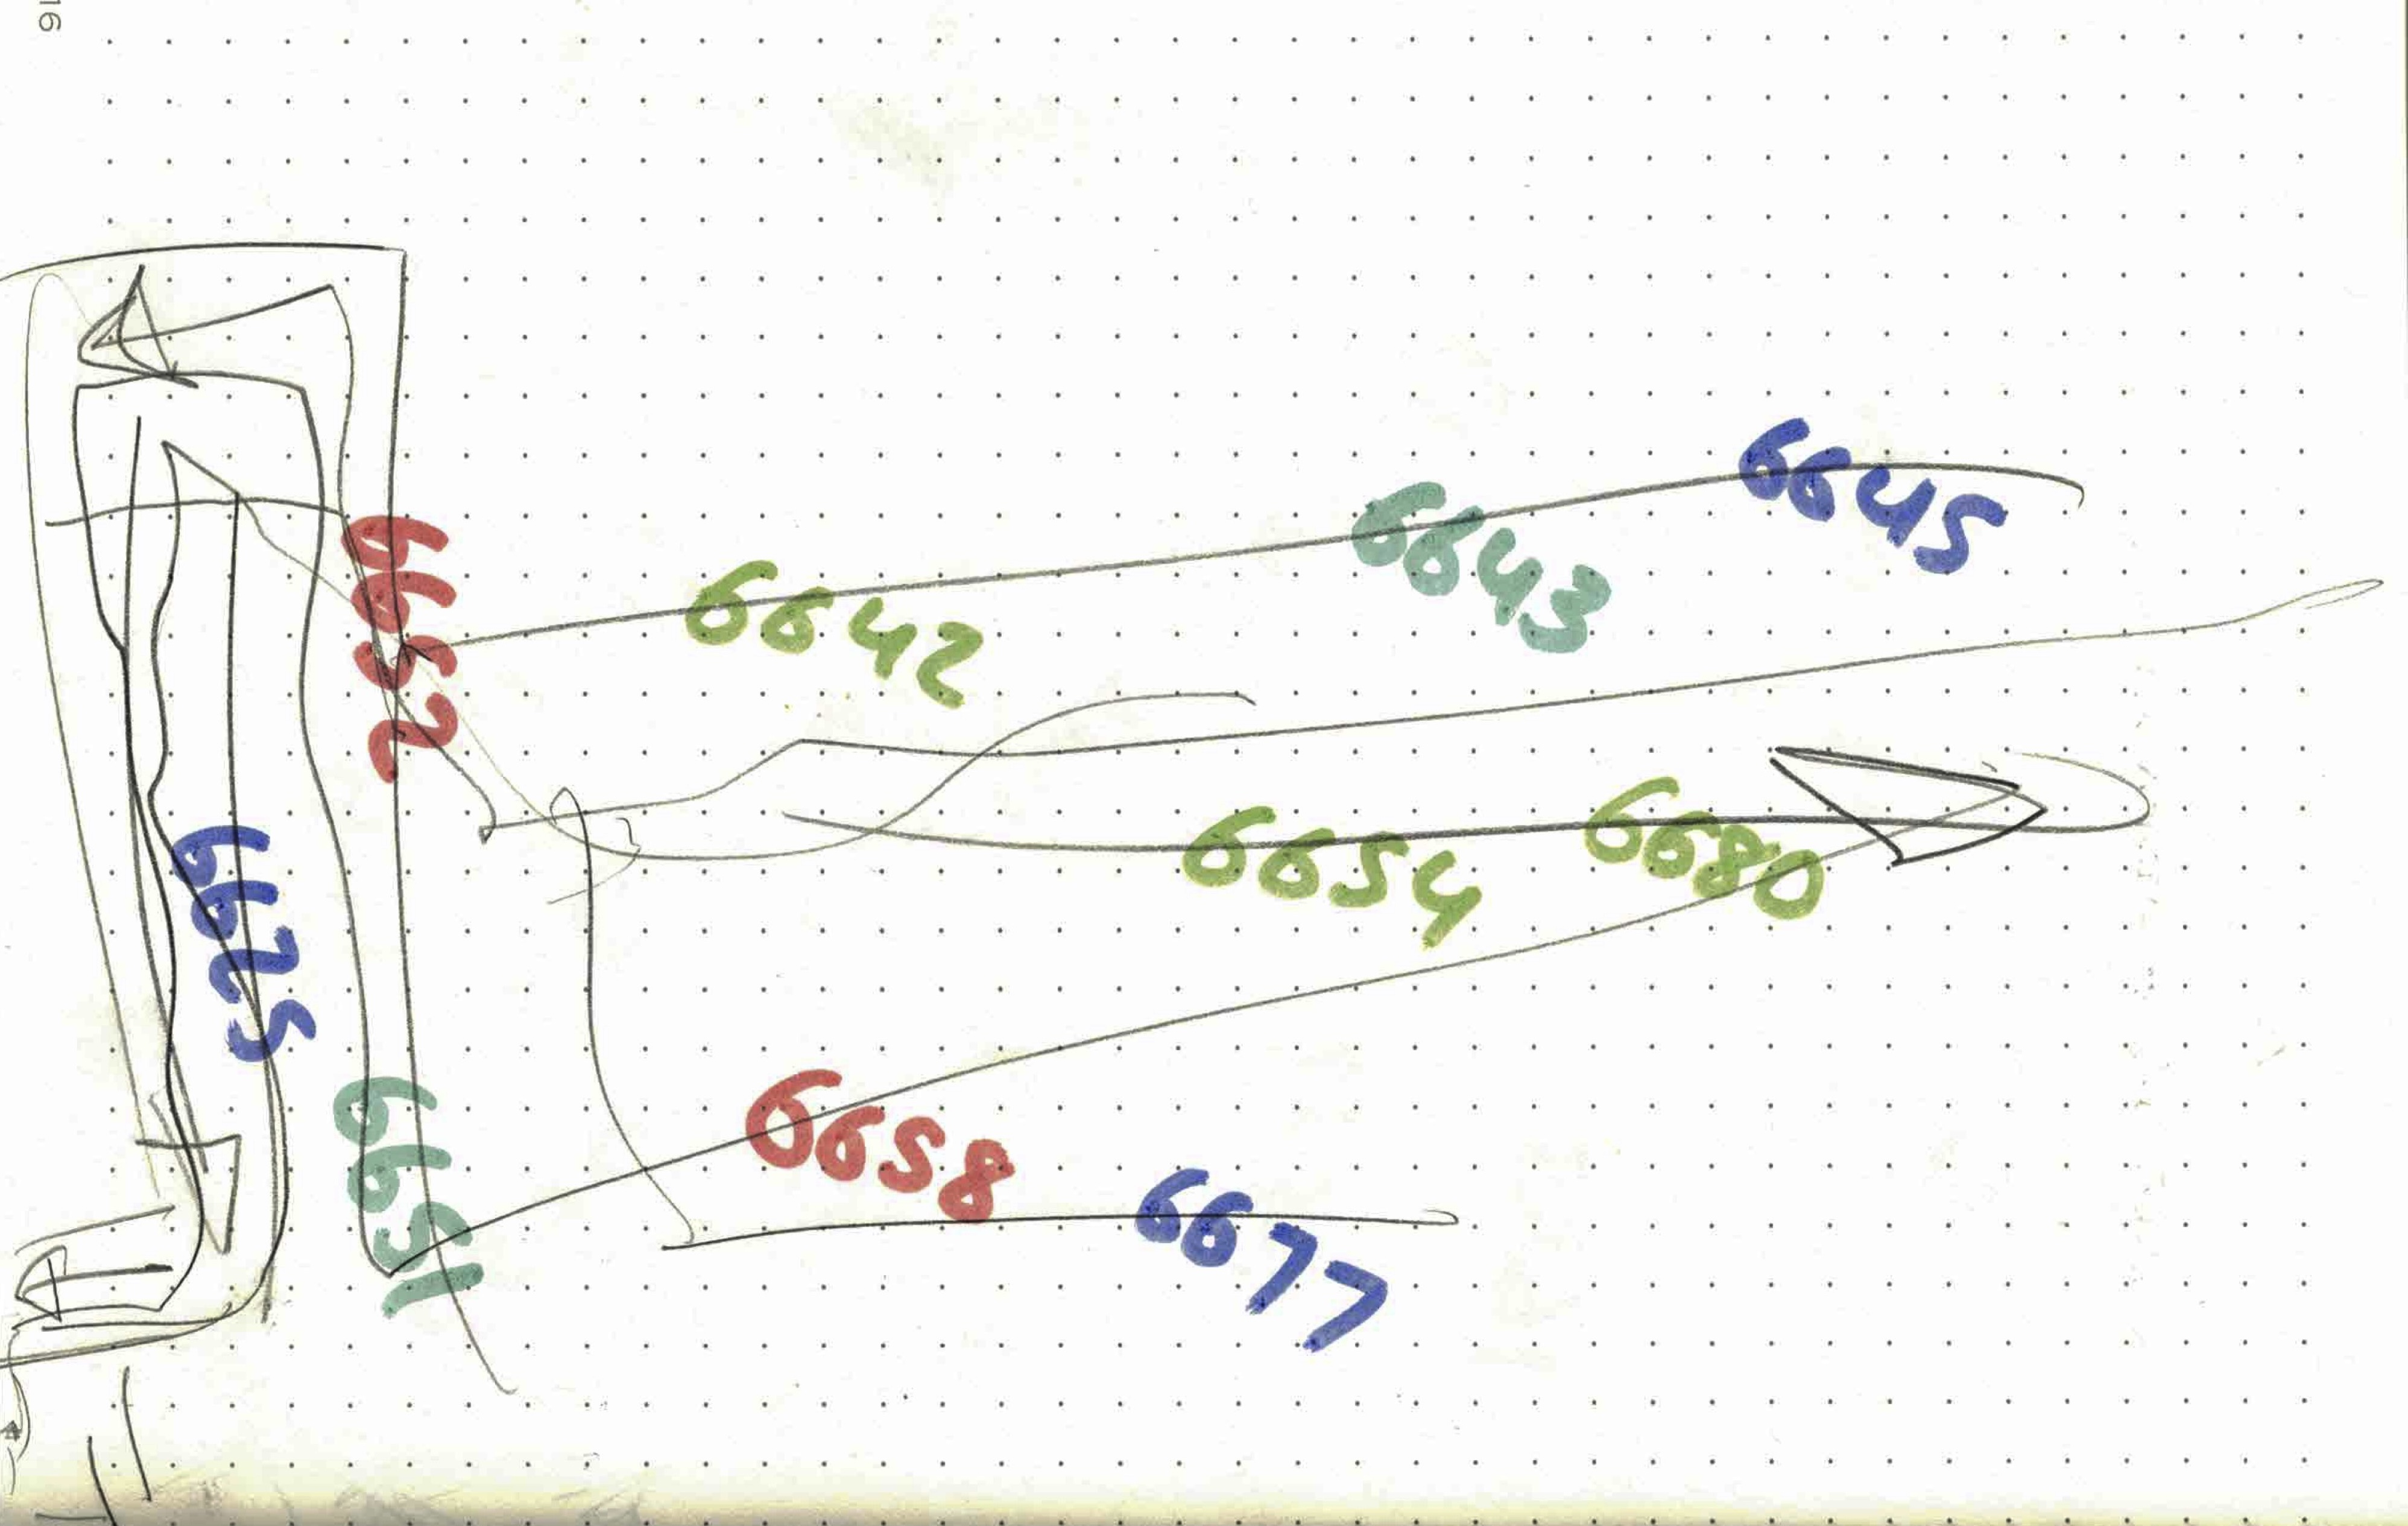 16
6645
6643
6652
6642
6654
6680
6625
6658
6651
6677